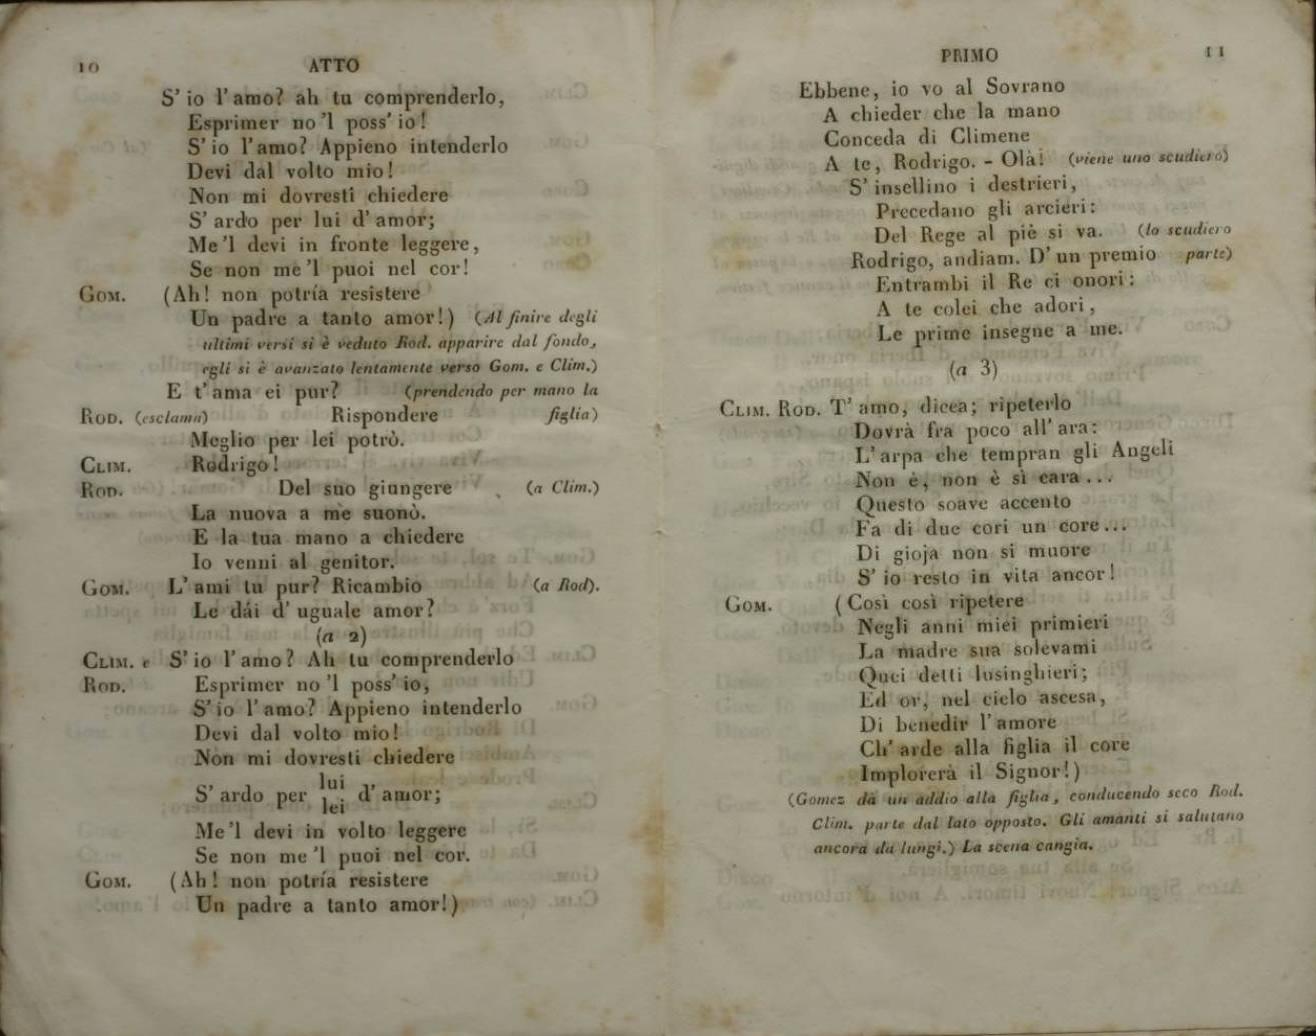 10 ATTO
S' io l'amo? ah tu comprenderlo,
Esprimer no 'l poss' io!
S' io l'amo? Appieno intenderlo
Devi dal volto mio!
Non mi dovresti chiedere
S' ardo per lui d' amor;
Me 'l devi in fronte leggere,
Se non me 'l puoi nel cor!
Gom. (Ah! non potría resistere
Un padre a tanto amor!) (Al finire degli
ultimi versi si è veduto Rod. apparire dal fondo,
egli si è avanzato lentamente verso Gom. e Clim.)
E t'ama ei pur? (prendendo per mano la
Rod. (esclama) Rispondere figlia)
Meglio per lei potrò.
Clim. Rodrigo!
Rod. Del suo giungere (a Clim.)
La nuova a me suonò.
E la tua mano a chiedere
Io venni al genitor.
Gom. L'ami tu pur? Ricambio (a Rod).
Le dái d' uguale amor?
(a 2)
Clim. e S' io l'amo? Ah tu comprenderlo
Rod. Esprimer no 'l poss' io,
S' io l'amo? Appieno intenderlo
Devi dal volto mio!
Non mi dovresti chiedere
S' ardo per lui d' amor;
lei
Me 'l devi in volto leggere
Se non me 'l puoi nel cor.
Gom. (Ah! non potría resistere
Un padre a tanto amor!)
PRIMO 11
Ebbene, io vo al Sovrano
A chieder che la mano
Conceda di Climene
A te, Rodrigo. - Olà! (viene uno scudiero)
S' insellino i destrieri,
Precedano gli arcieri:
Del Rege al piè si va. (lo scudiero
Rodrigo, andiam. D' un premio parte)
Entrambi il Re ci onori:
A te colei che adori,
Le prime insegne a me.
(a 3)
Clim. Rod. T' amo, dicea; ripeterlo
Dovrà fra poco all' ara:
L'arpa che tempran gli Angeli
Non è, non è sì cara...
Questo soave accento
Fa di due cori un core...
Di gioja non si muore
S' io resto in vita ancor!
Gom. (Così così ripetere
Negli anni miei primieri
La madre sua solevami
Quei detti lusinghieri;
Ed or, nel cielo ascesa,
Di benedir l'amore
Ch' arde alla figlia il core
Implorerà il Signor!)
(Gomez dà un addio alla figlia, conducendo seco Rod.
Clim. parte dal lato opposto. Gli amanti si salutano
ancora da lungi.) La scena cangia.